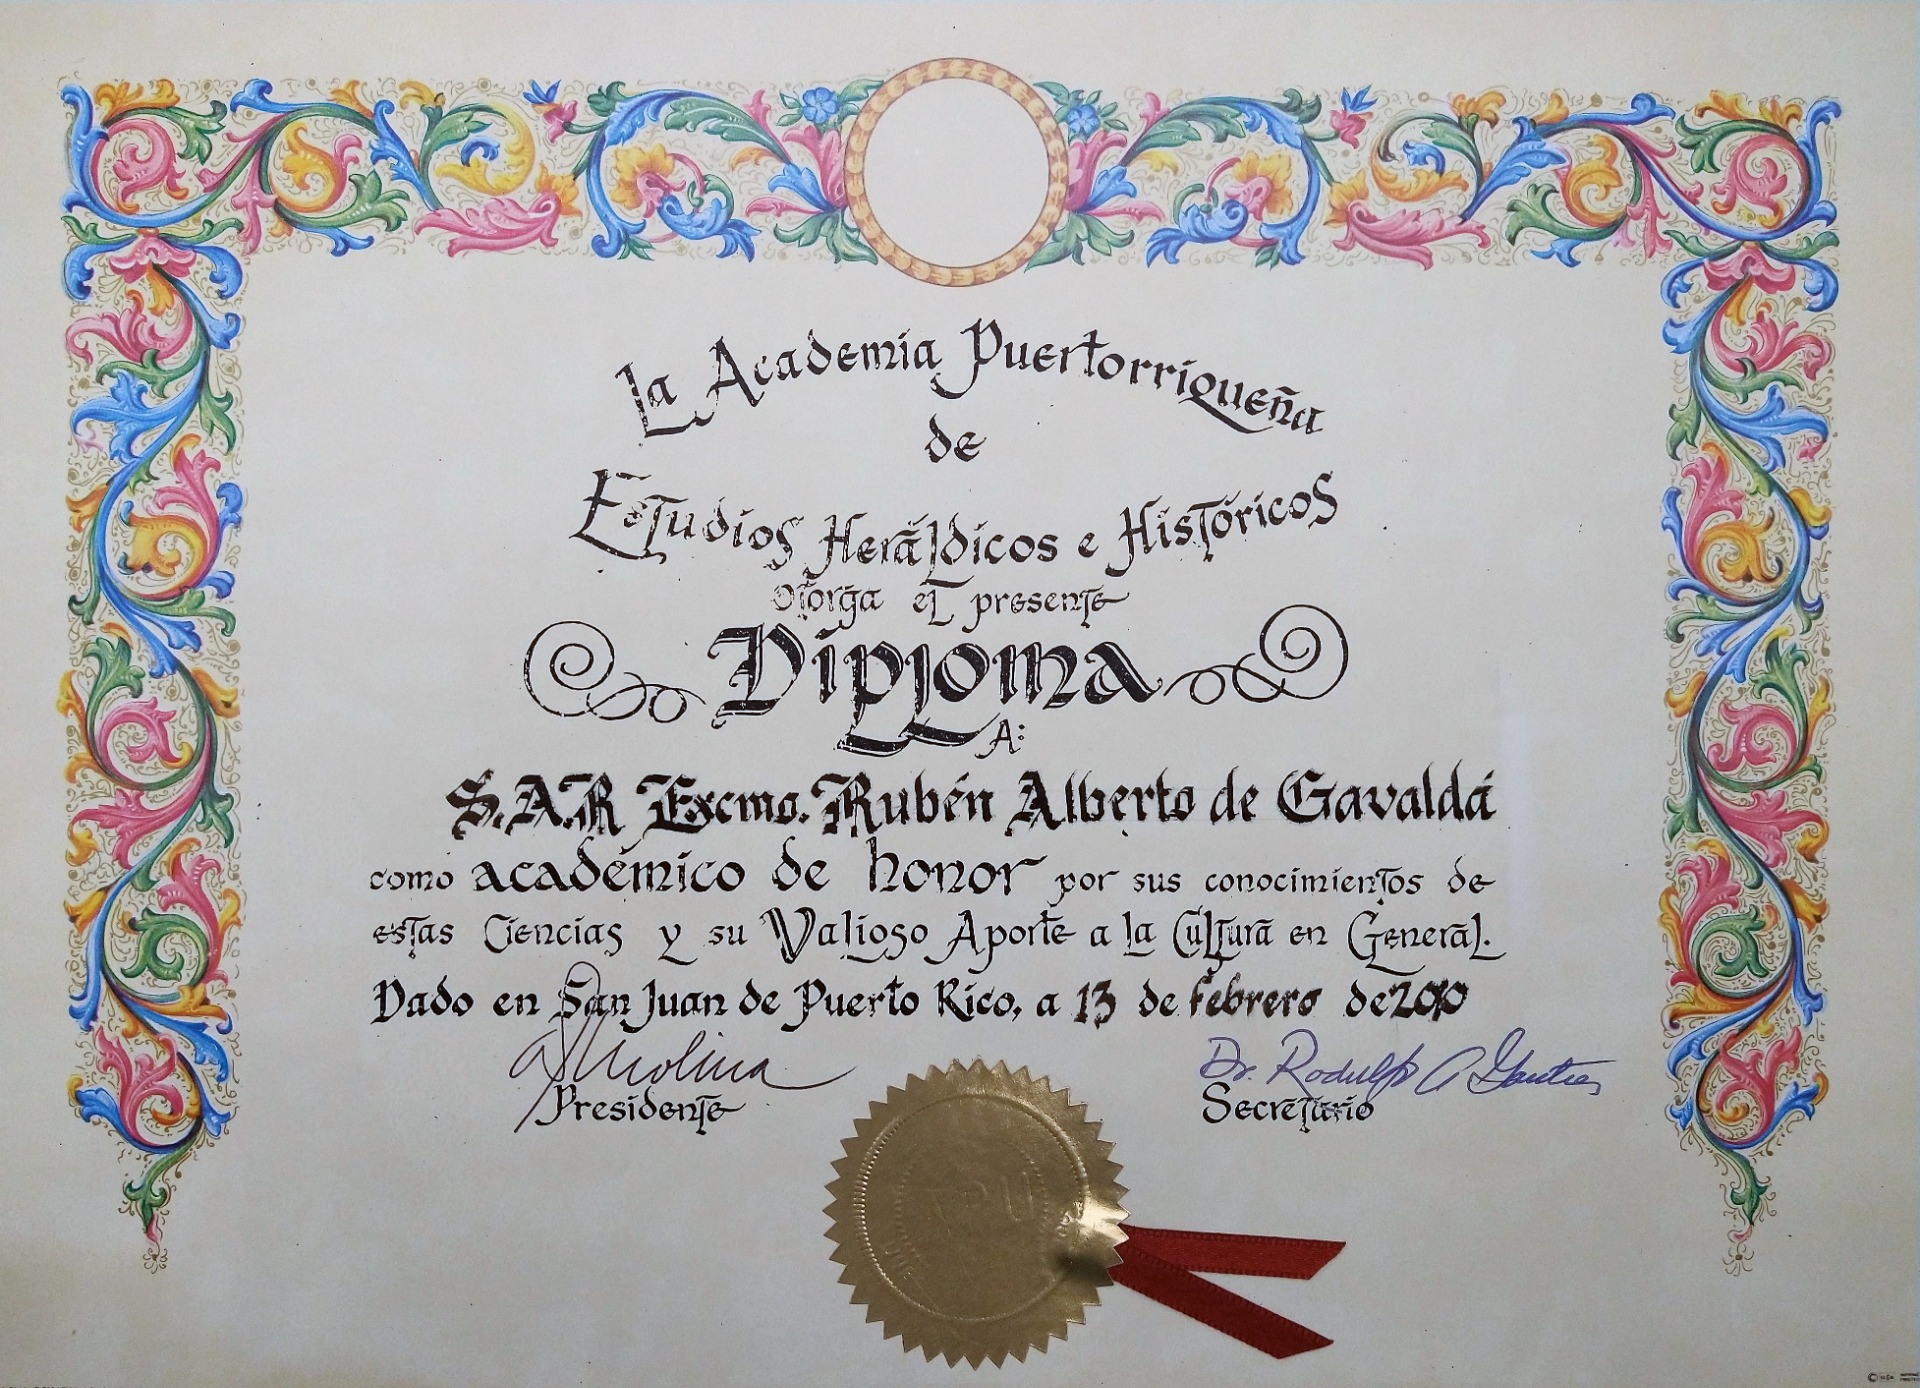 La Academia Puertorriqueña
de
Estudios Heráldicos e Históricos
Otorga el presente
Diploma
A:
S.A.R Excmo. Rubén Alberto de Gavaldá
como académico de honor por sus conocimientos de
estas Ciencias y su Valioso Aporte a la Cultura en General.
Dado en San Juan de Puerto Rico, a 13 de febrero de
Molina
Dr. Rodulfo A
Presidente
Secretario